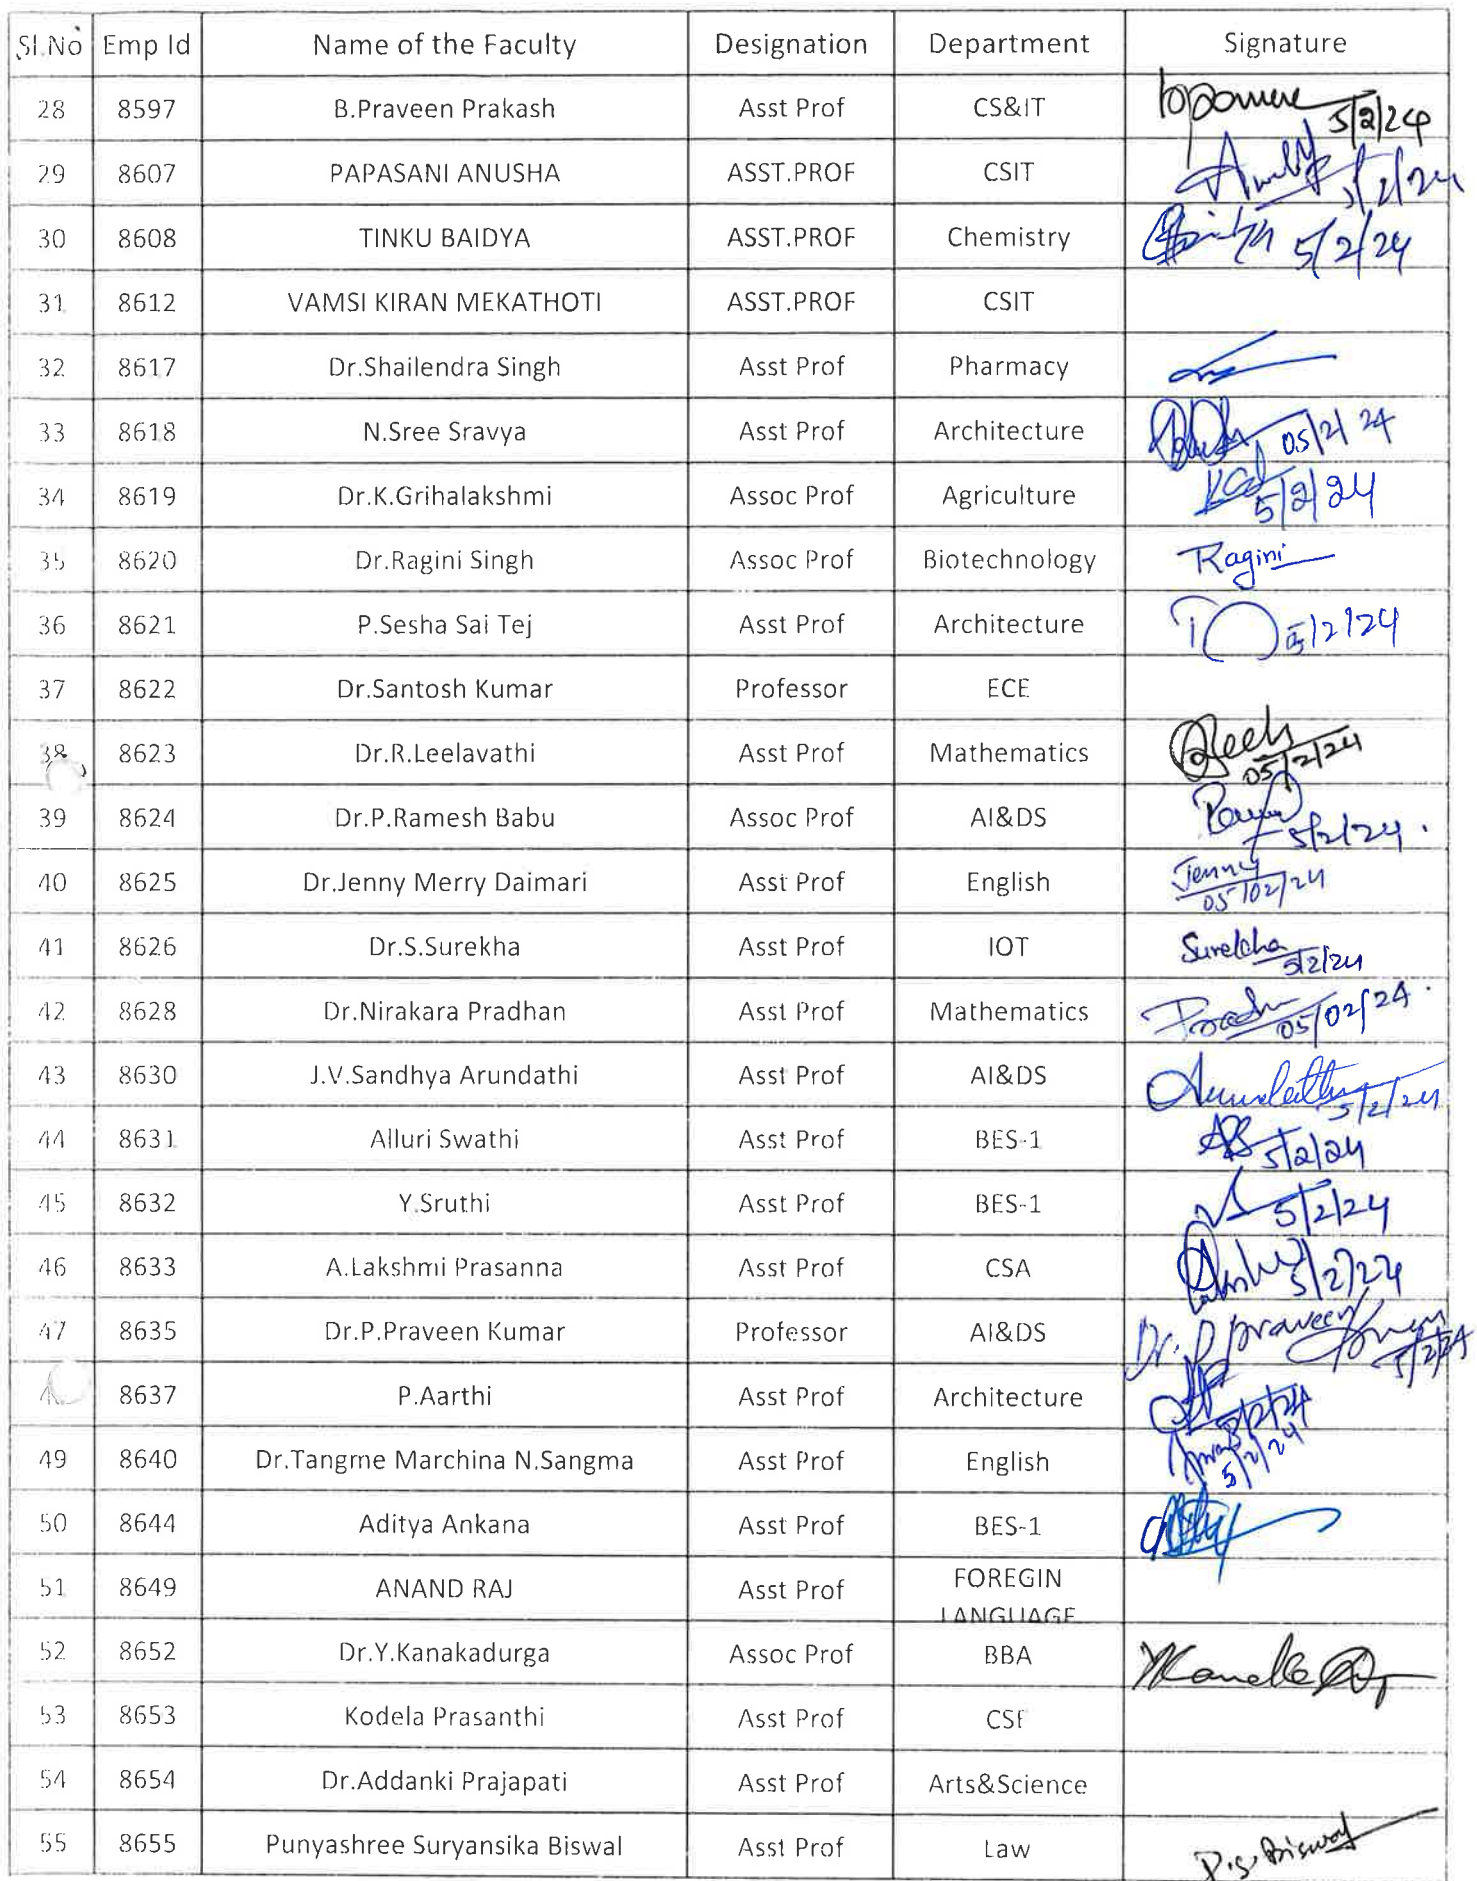 Sl.No Emp Id Name of the Faculty Designation Department Signature
28 8597 B.Praveen Prakash Asst Prof CS&IT 5/2/24
29 8607 PAPASANI ANUSHA ASST.PROF CSIT 5/2/24
30 8608 TINKU BAIDYA ASST.PROF Chemistry 5/2/24
31 8612 VAMSI KIRAN MEKATHOTI ASST.PROF CSIT
32 8617 Dr.Shailendra Singh Asst Prof Pharmacy
33 8618 N.Sree Sravya Asst Prof Architecture 05/2/24
34 8619 Dr.K.Grihalakshmi Assoc Prof Agriculture 5/2/24
35 8620 Dr.Ragini Singh Assoc Prof Biotechnology Ragini
36 8621 P.Sesha Sai Tej Asst Prof Architecture 5/2/24
37 8622 Dr.Santosh Kumar Professor ECE
38 8623 Dr.R.Leelavathi Asst Prof Mathematics 05/2/24
39 8624 Dr.P.Ramesh Babu Assoc Prof AI&DS 5/2/24.
40 8625 Dr.Jenny Merry Daimari Asst Prof English Jenny 05/02/24
41 8626 Dr.S.Surekha Asst Prof IOT Surekha 5/2/24
42 8628 Dr.Nirakara Pradhan Asst Prof Mathematics 05/02/24.
43 8630 J.V.Sandhya Arundathi Asst Prof AI&DS 5/2/24
44 8631 Alluri Swathi Asst Prof BES-1 5/2/24
45 8632 Y.Sruthi Asst Prof BES-1 5/2/24
46 8633 A.Lakshmi Prasanna Asst Prof CSA 5/2/24
47 8635 Dr.P.Praveen Kumar Professor AI&DS Dr. P praveen 5/2/24
8637 P.Aarthi Asst Prof Architecture 5/2/24
49 8640 Dr.Tangme Marchina N.Sangma Asst Prof English 5/2/24
50 8644 Aditya Ankana Asst Prof BES-1
51 8649 ANAND RAJ Asst Prof FOREGIN
LANGUAGE
52 8652 Dr.Y.Kanakadurga Assoc Prof BBA
53 8653 Kodela Prasanthi Asst Prof CSE
54 8654 Dr.Addanki Prajapati Asst Prof Arts&Science
55 8655 Punyashree Suryansika Biswal Asst Prof Law P.S. Biswal